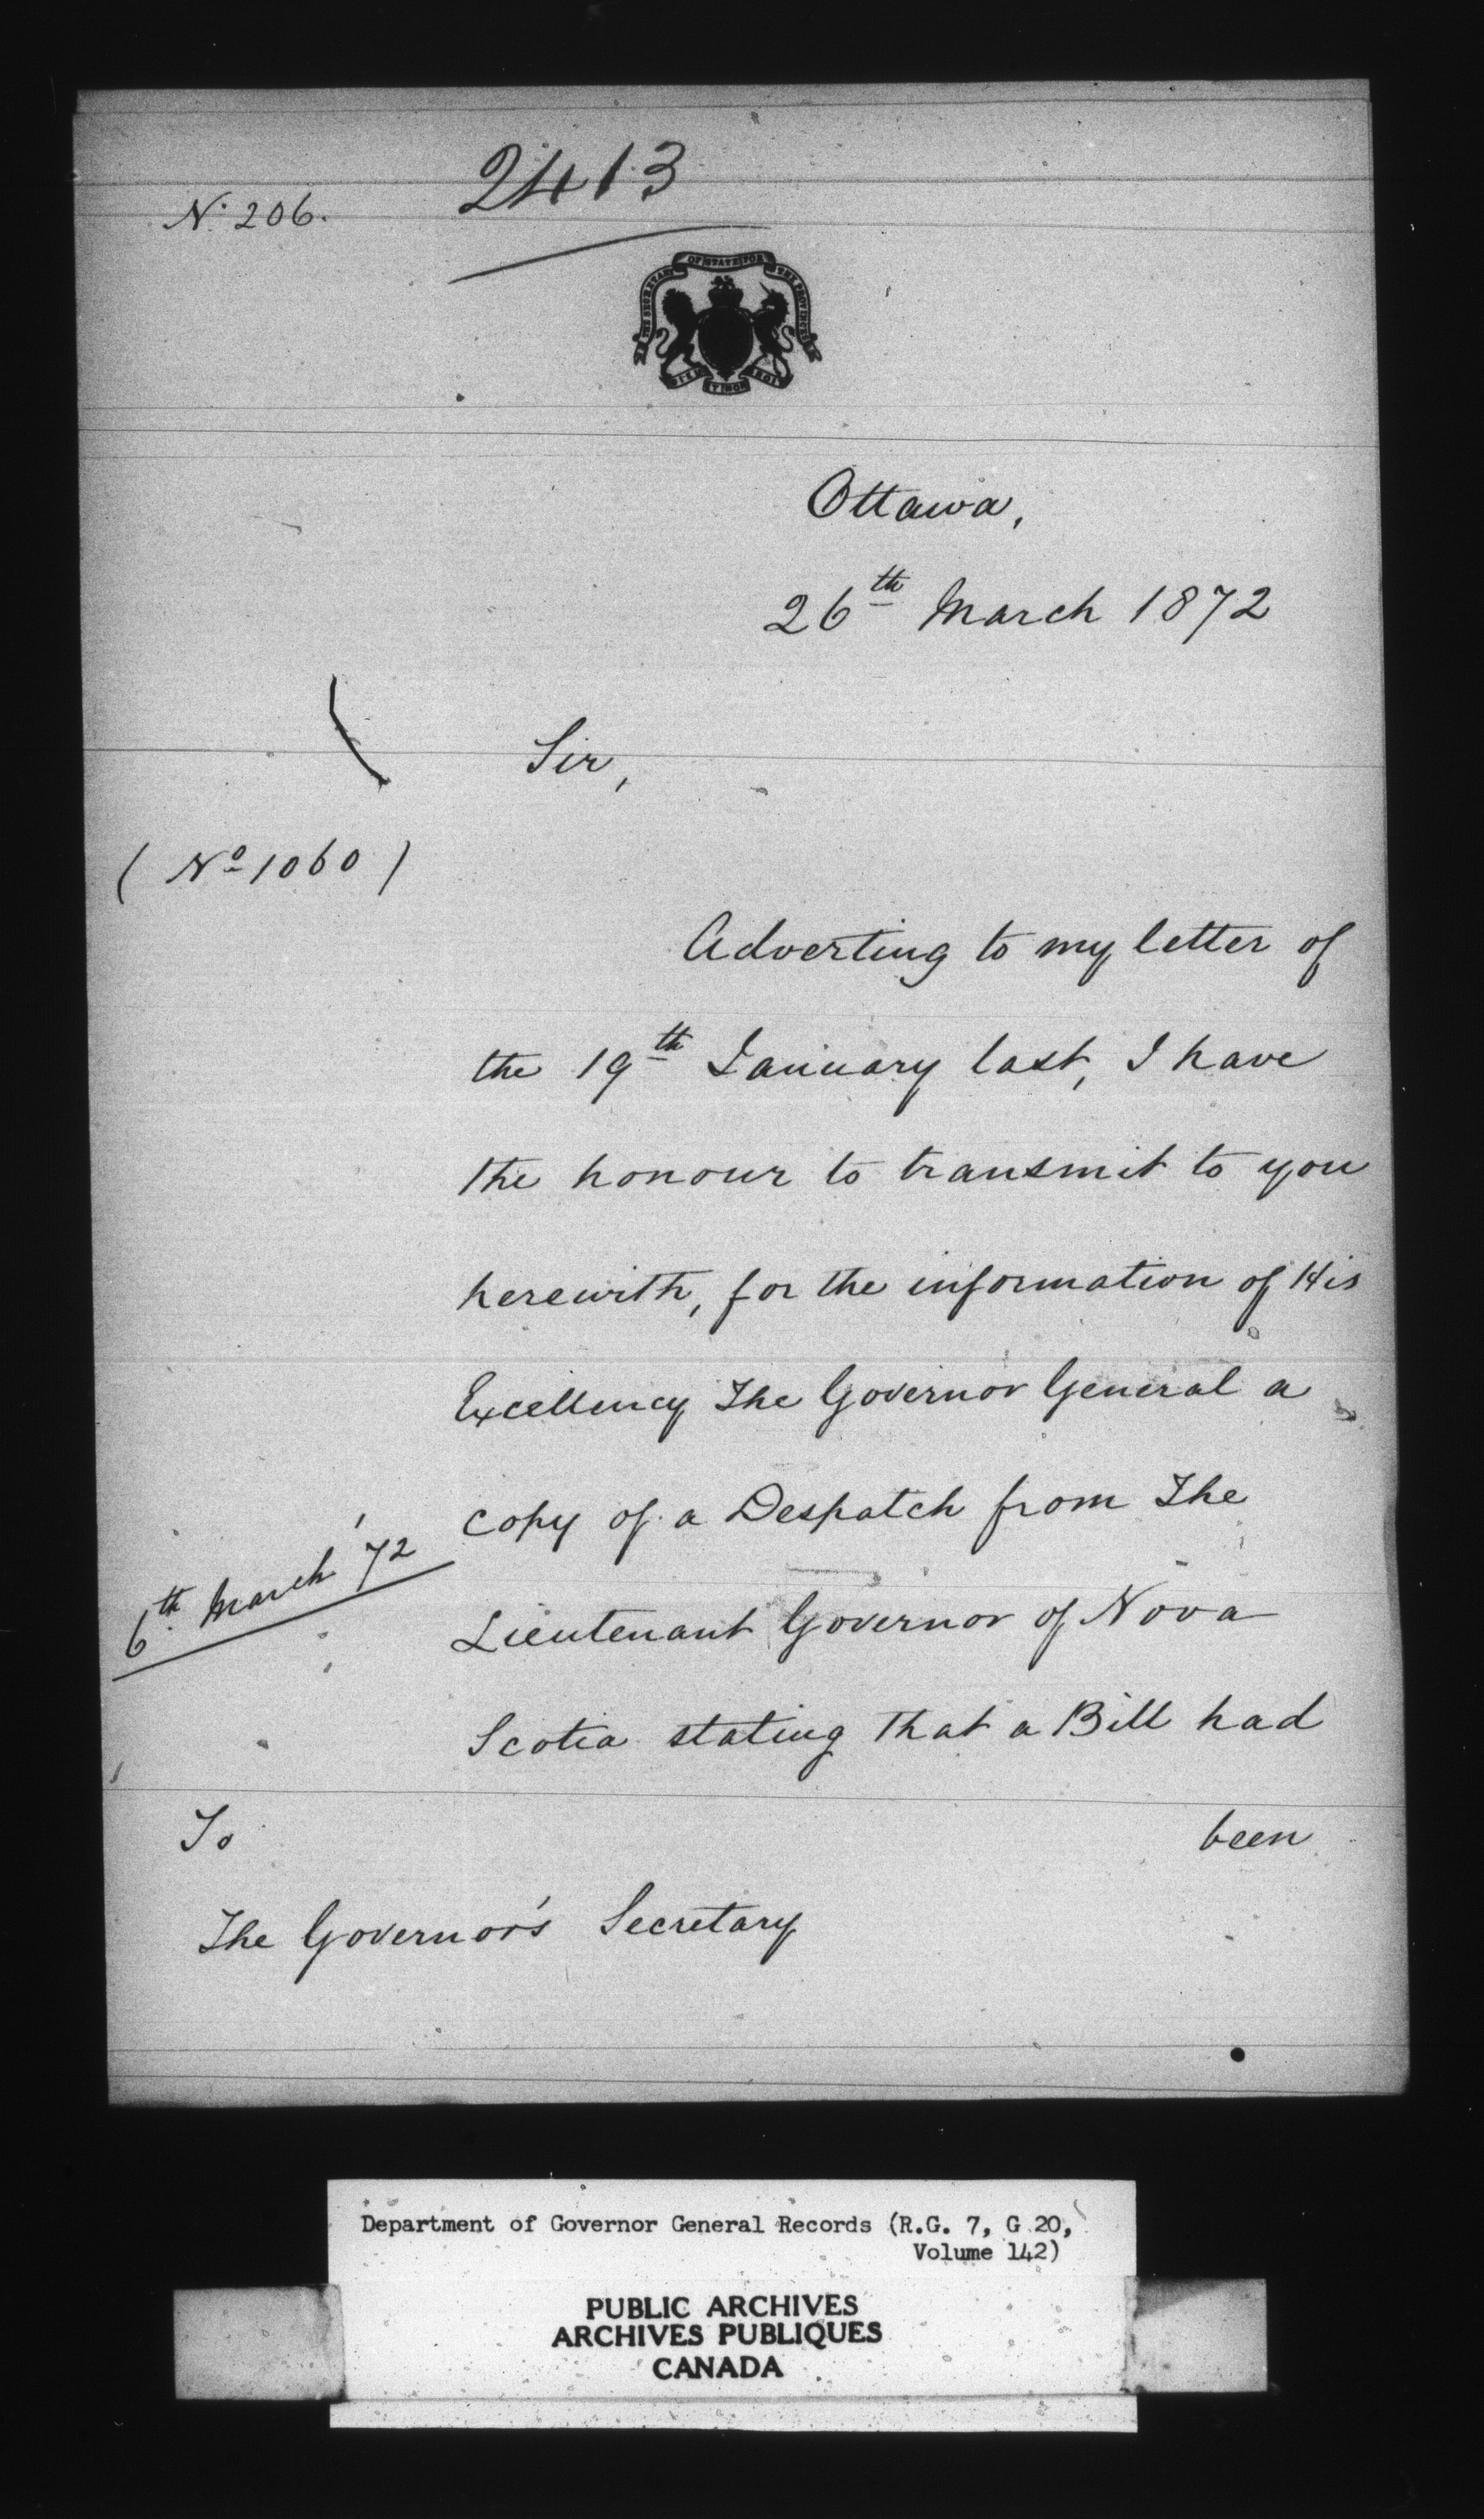 2413
No. 206.
THE SECRETARY OF STATE FOR THE PROVINCES
Ottawa,
26th March 1872
Sir,
(No 1060)
Adverting to my letter of
the 19th January last, I have
the honour to transmit to you
herewith, for the information of His
Excellency The Governor General a
copy of a Despatch from The
6th March '72
Lieutenant Governor of Nova
Scotia stating that a Bill had
been
To
The Governor's Secretary
Department of Governor General Records (R.G. 7, G 20,
Volume 142)
PUBLIC ARCHIVES
ARCHIVES PUBLIQUES
CANADA